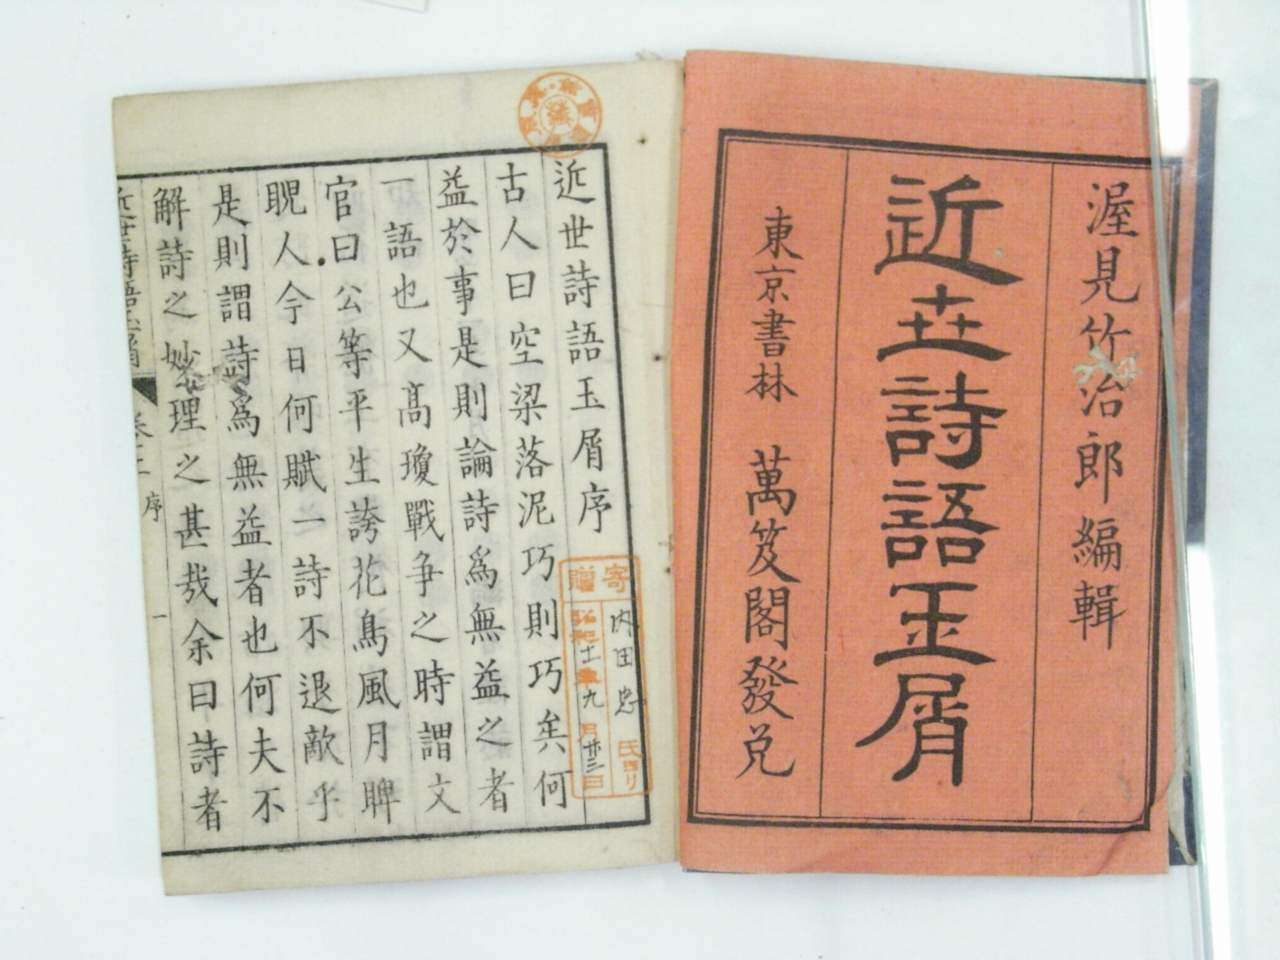 渥見竹治郎編輯
近世詩語玉屑
東京書林 萬笈閣發兌
近世詩語玉屑序
古人曰空梁落泥巧則巧矣何
益於事是則論詩爲無益之者
一語也又高瓊戰争之時謂文
官曰公等平生誇花鳥風月睥
睨人今日何賦一詩不退敵乎
是則謂詩爲無益者也何夫不
解詩之妙理之甚哉余曰詩者
近世詩語玉屑 序 一
寄贈
内田忠氏ヨリ
九月廿三日